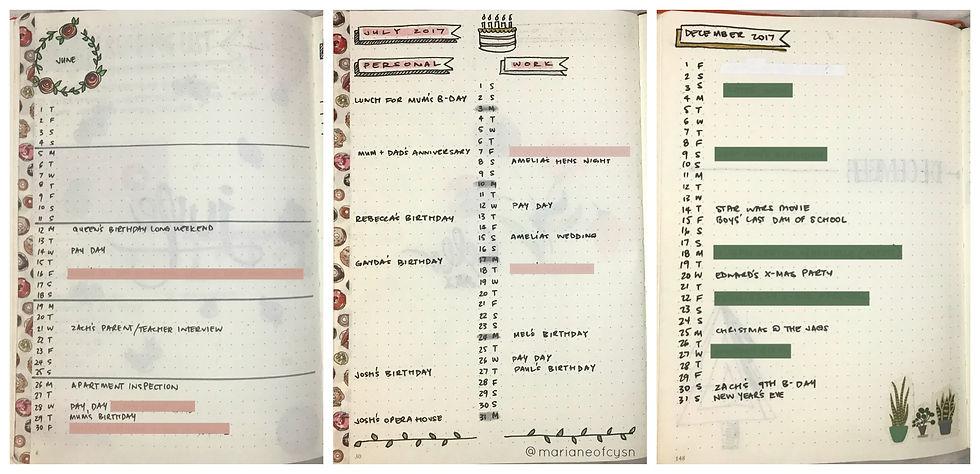 JUNE
1 T
2 F
3 S
4 S
5 M
6 T
7 W
8 T
9 F
10 S
11 S
12 M QUEEN'S BIRTHDAY LONG WEEKEND
13 T
14 W PAY DAY
15 T
16 F
17 S
18 S
19 M
20 T
21 W ZACH'S PARENT/TEACHER INTERVIEW
22 T
23 F
24 S
25 S
26 M APARTMENT INSPECTION
27 T
28 W PAY DAY
29 T MUM'S BIRTHDAY
30 F
JULY 2017
PERSONAL WORK
1 S
LUNCH FOR MUM'S B-DAY 2 S
3 M
4 T
5 W
6 T
MUM + DAD'S ANNIVERSARY 7 F
8 S AMELIA'S HENS NIGHT
9 S
10 M
11 T
12 W PAY DAY
REBECCA'S BIRTHDAY 13 T
14 F
15 S AMELIA'S WEDDING
16 S
GAYDA'S BIRTHDAY 17 M
18 T
19 W
20 T
21 F
22 S
23 S
24 M MEL'S BIRTHDAY
25 T
26 W PAY DAY
JOSH'S BIRTHDAY 27 T PAUL'S BIRTHDAY
28 F
29 S
30 S
JOSH'S OPERA HOUSE 31 M
@marianeofcysn
DECEMBER 2017
1 F
2 S
3 S
4 M
5 T
6 W
7 T
8 F
9 S
10 S
11 M
12 T
13 W
14 T STAR WARS MOVIE
15 F BOYS' LAST DAY OF SCHOOL
16 S
17 S
18 M
19 T
20 W EDWARD'S X-MAS PARTY
21 T
22 F
23 S
24 S
25 M CHRISTMAS @ THE JAQS
26 T
27 W
28 T
29 F
30 S ZACH'S 9TH B-DAY
31 S NEW YEAR'S EVE
148